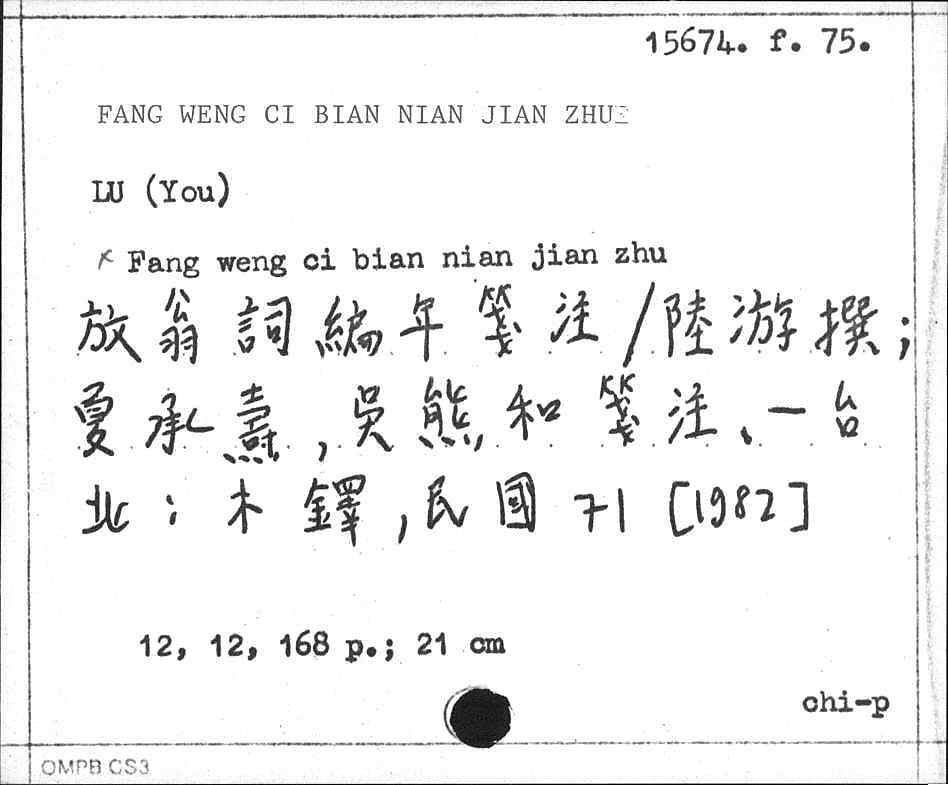 15674. f. 75.
FANG WENG CI BIAN NIAN JIAN ZHU
LU (You)
Fang weng ci bian nian jian zhu
放翁詞編年箋注/陸游撰;
夏承燾,吳熊和箋注、一台
北:木鐸,民國71[1982]
12, 12, 168 p.; 21 cm
chi-p
OMPB CS3